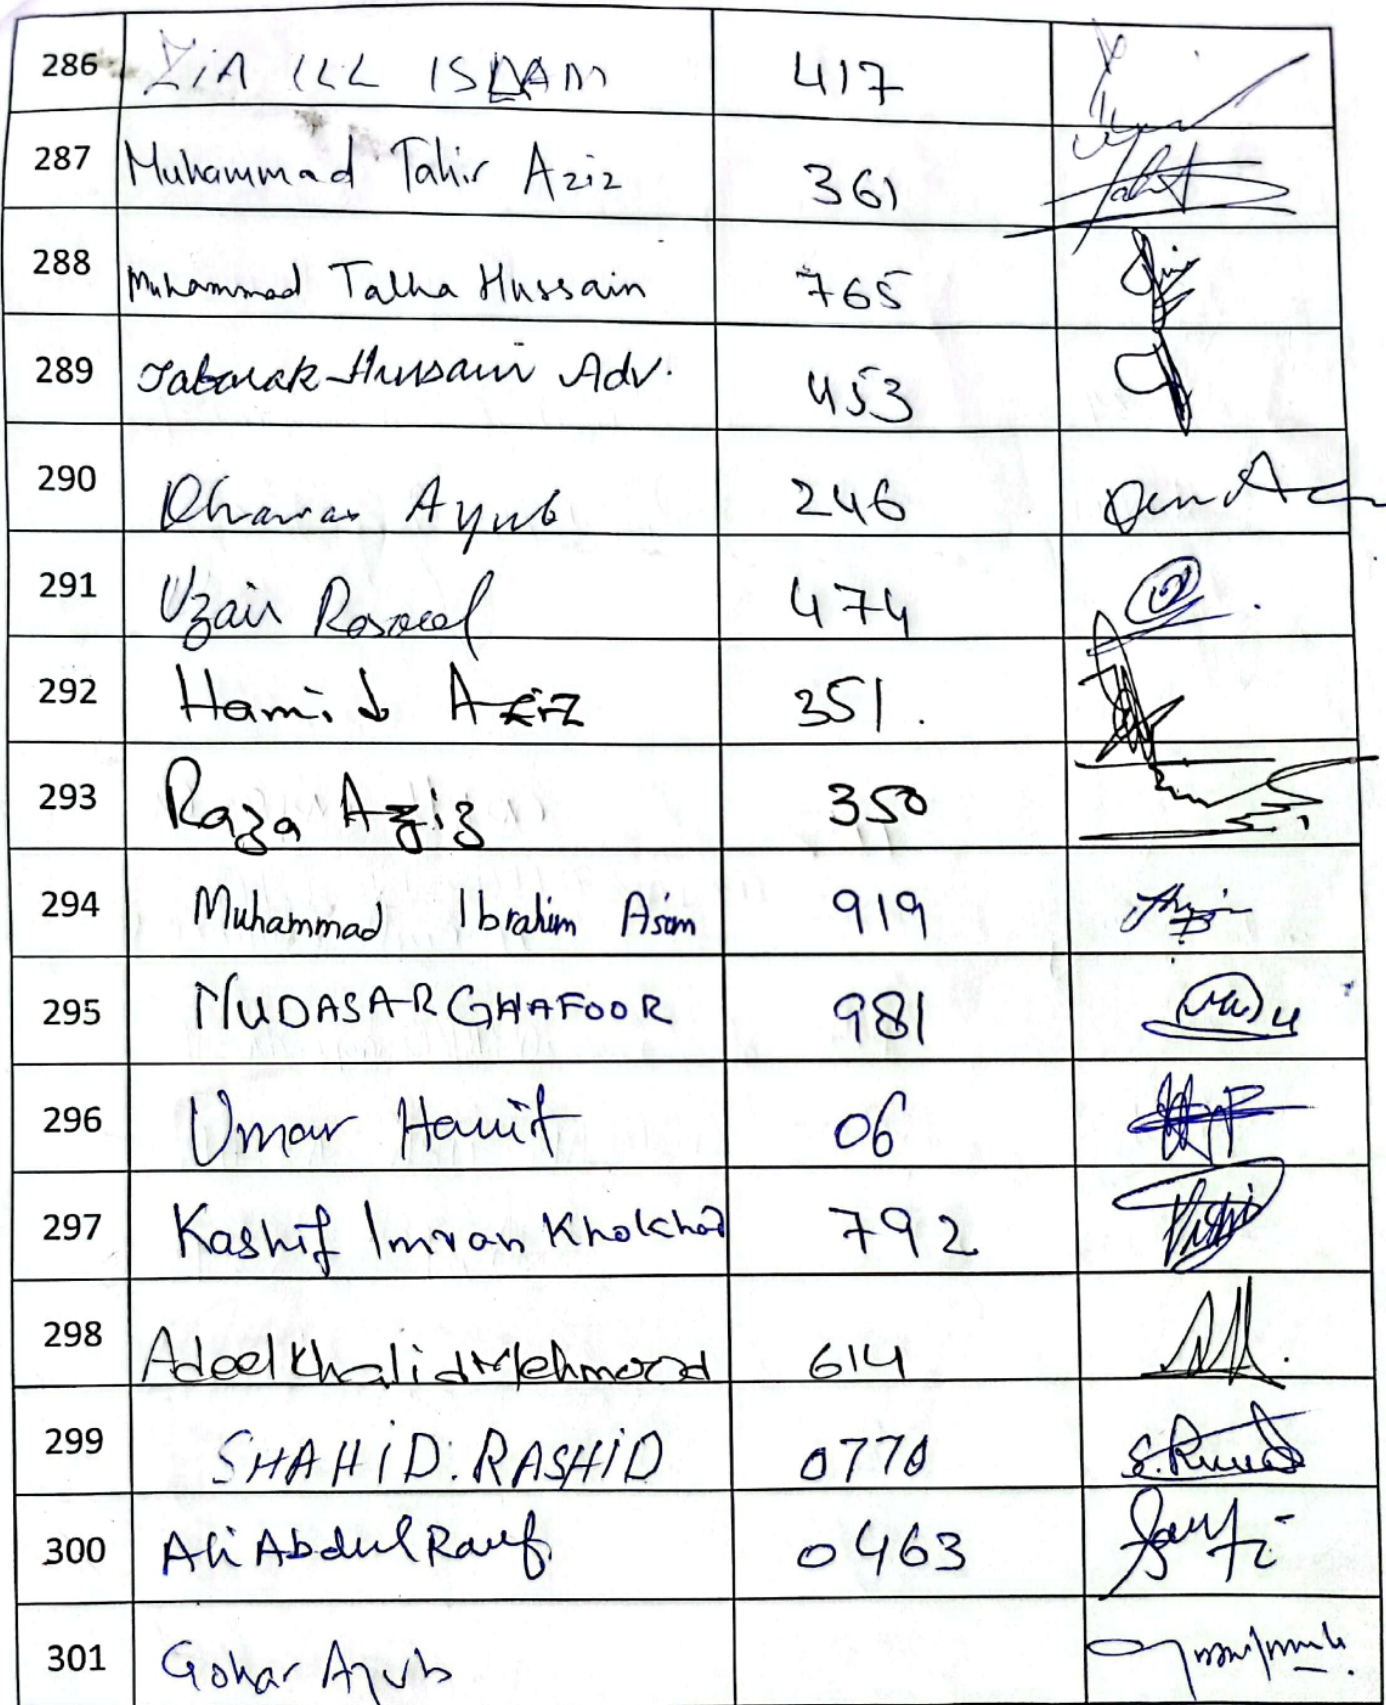 286 ZIA ULL ISLAM 417
287 Muhammad Tahir Aziz 361
288 Muhammad Talha Hussain 765
289 Tabarak Hussain Adv. 453
290 Ayub 246
291 Uzair 474
292 Hamid Aziz 351.
293 Raza Aziz 350
294 Muhammad Ibrahim Asim 919
295 MUDASAR GHAFOOR 981
296 Umar Hanif 06
297 Kashif Imran Khokhar 792
298 Adeel Khalid Mehmood 614
299 SHAHID. RASHID 0770
300 Ali Abdul Rauf 0463
301 Gohar Ayub